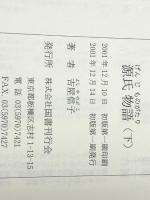 げんじものがたり
源氏物語〈下〉
2001年12月10日 初版第一刷印刷
2001年12月14日 初版第一刷発行
著者 吉屋信子
発行所 株式会社国書刊行会
東京都板橋区志村1-13-15
電話 03(5970)7421
FAX. 03(5970)7427